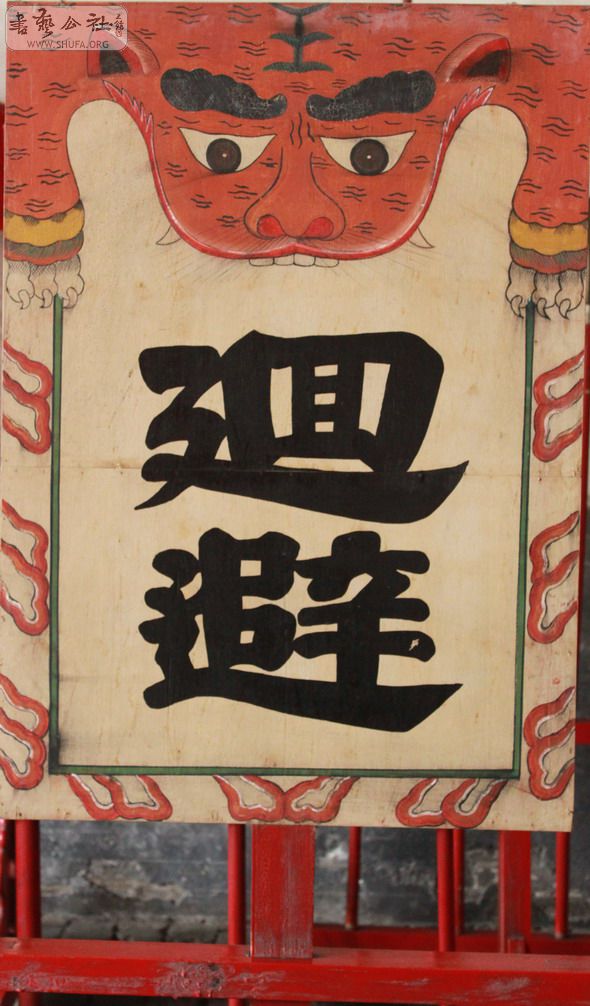 書藝公社
WWW.SHUFA.ORG
廻
避